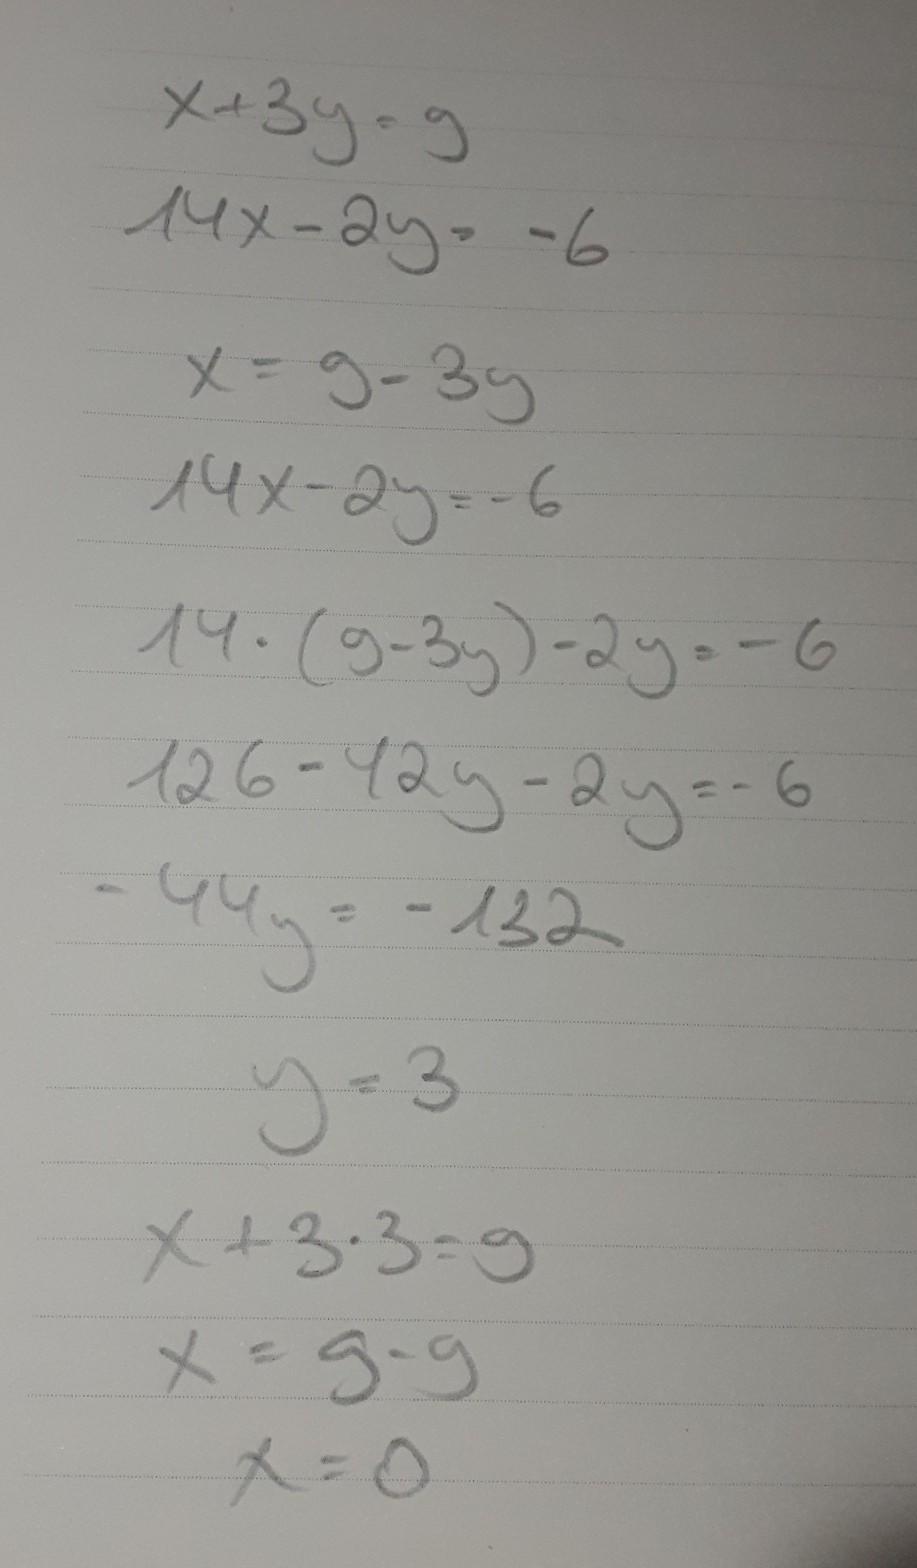 x+3y=9
14x-2y=-6
x=9-3y
14x-2y=-6
14·(9-3y)-2y=-6
126-42y-2y=-6
-44y=-132
y=3
x+3·3=9
x=9-9
x=0